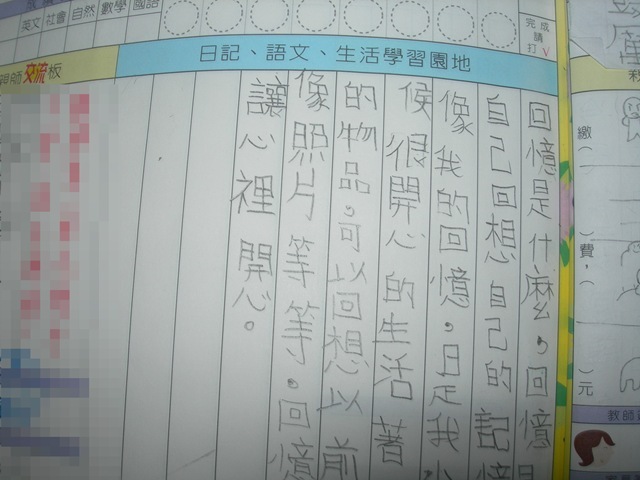 英文 社會 自然 數學 國語
完成請打√
日記、語文、生活學習園地
親師交流板
回憶是什麼，回憶是
自己回想自己的記憶
像我的回憶，是我小
候很開心的生活著
的物品，可以回想以前
像照片等等，回憶
讓心裡開心。
繳( )費，( )元
教師